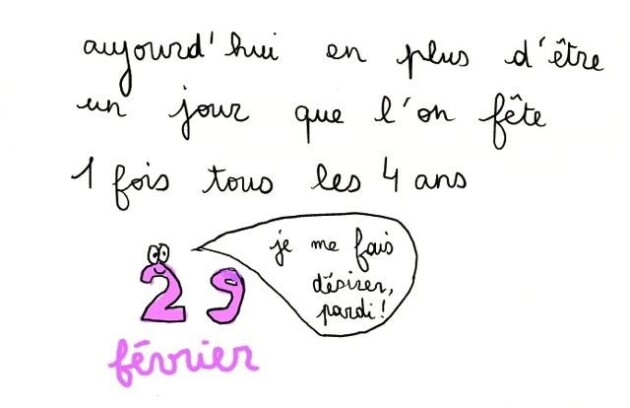 aujourd'hui en plus d'être
un jour que l'on fête
1 fois tous les 4 ans
je me fais
désirer,
pardi!
29
février